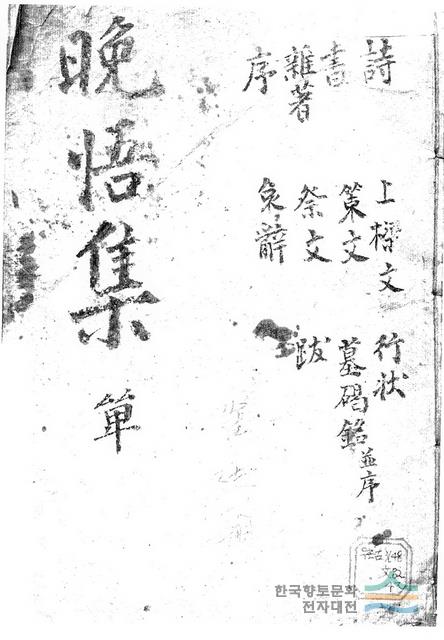 詩 上樑文 行狀
書 策文 墓碣銘並序
雜著 祭文 跋
序 哀辭
晩悟集 單
한국향토문화
전자대전